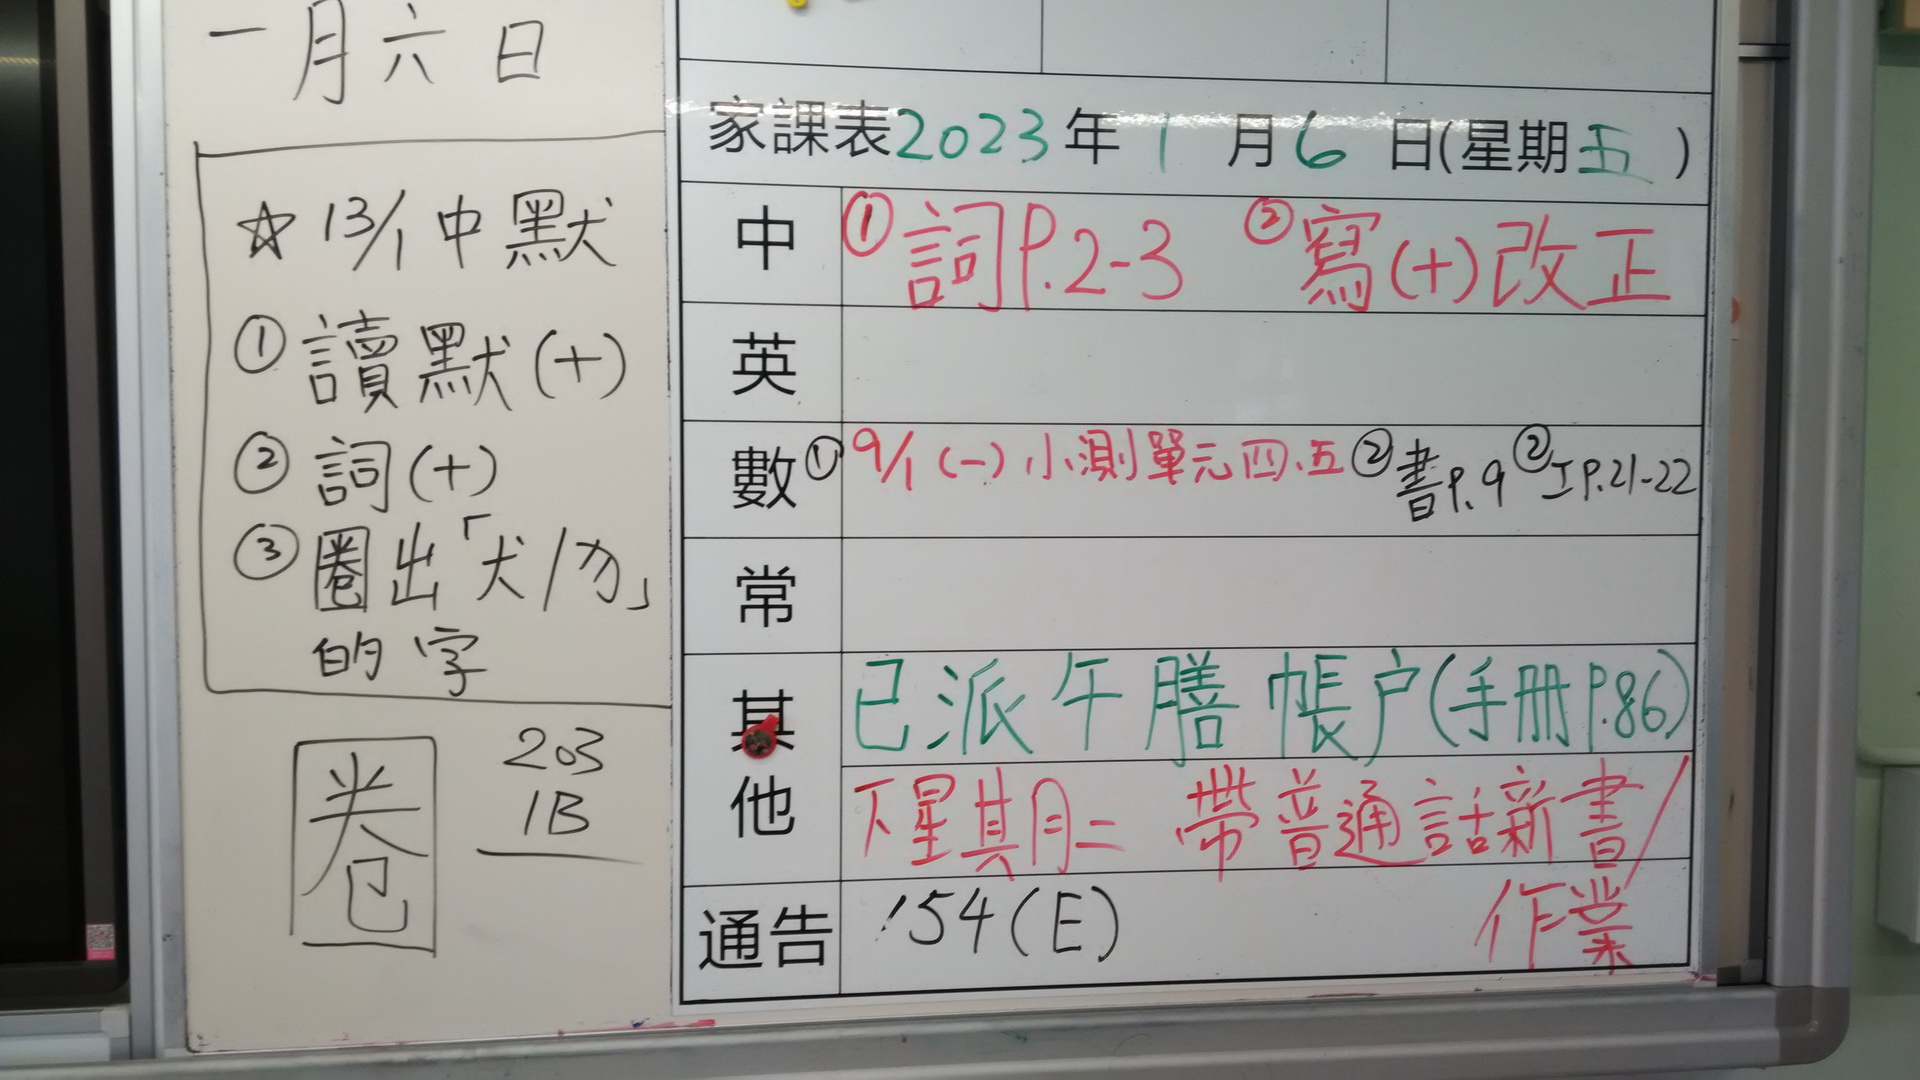 一月六日
☆13/1中默
①讀默(十)
②詞(十)
③圈出「犬/力」
的字
圈
203
1B
家課表2023年1月6日(星期五)
中 ①詞P.2-3 ②寫(十)改正
英
數 ①9/1(一)小測單元四、五 ②書P.9 ②工P.21-22
常
其他 已派午膳帳户(手册P.86)
下星期二帶普通話新書/
作業
通告 154(E)